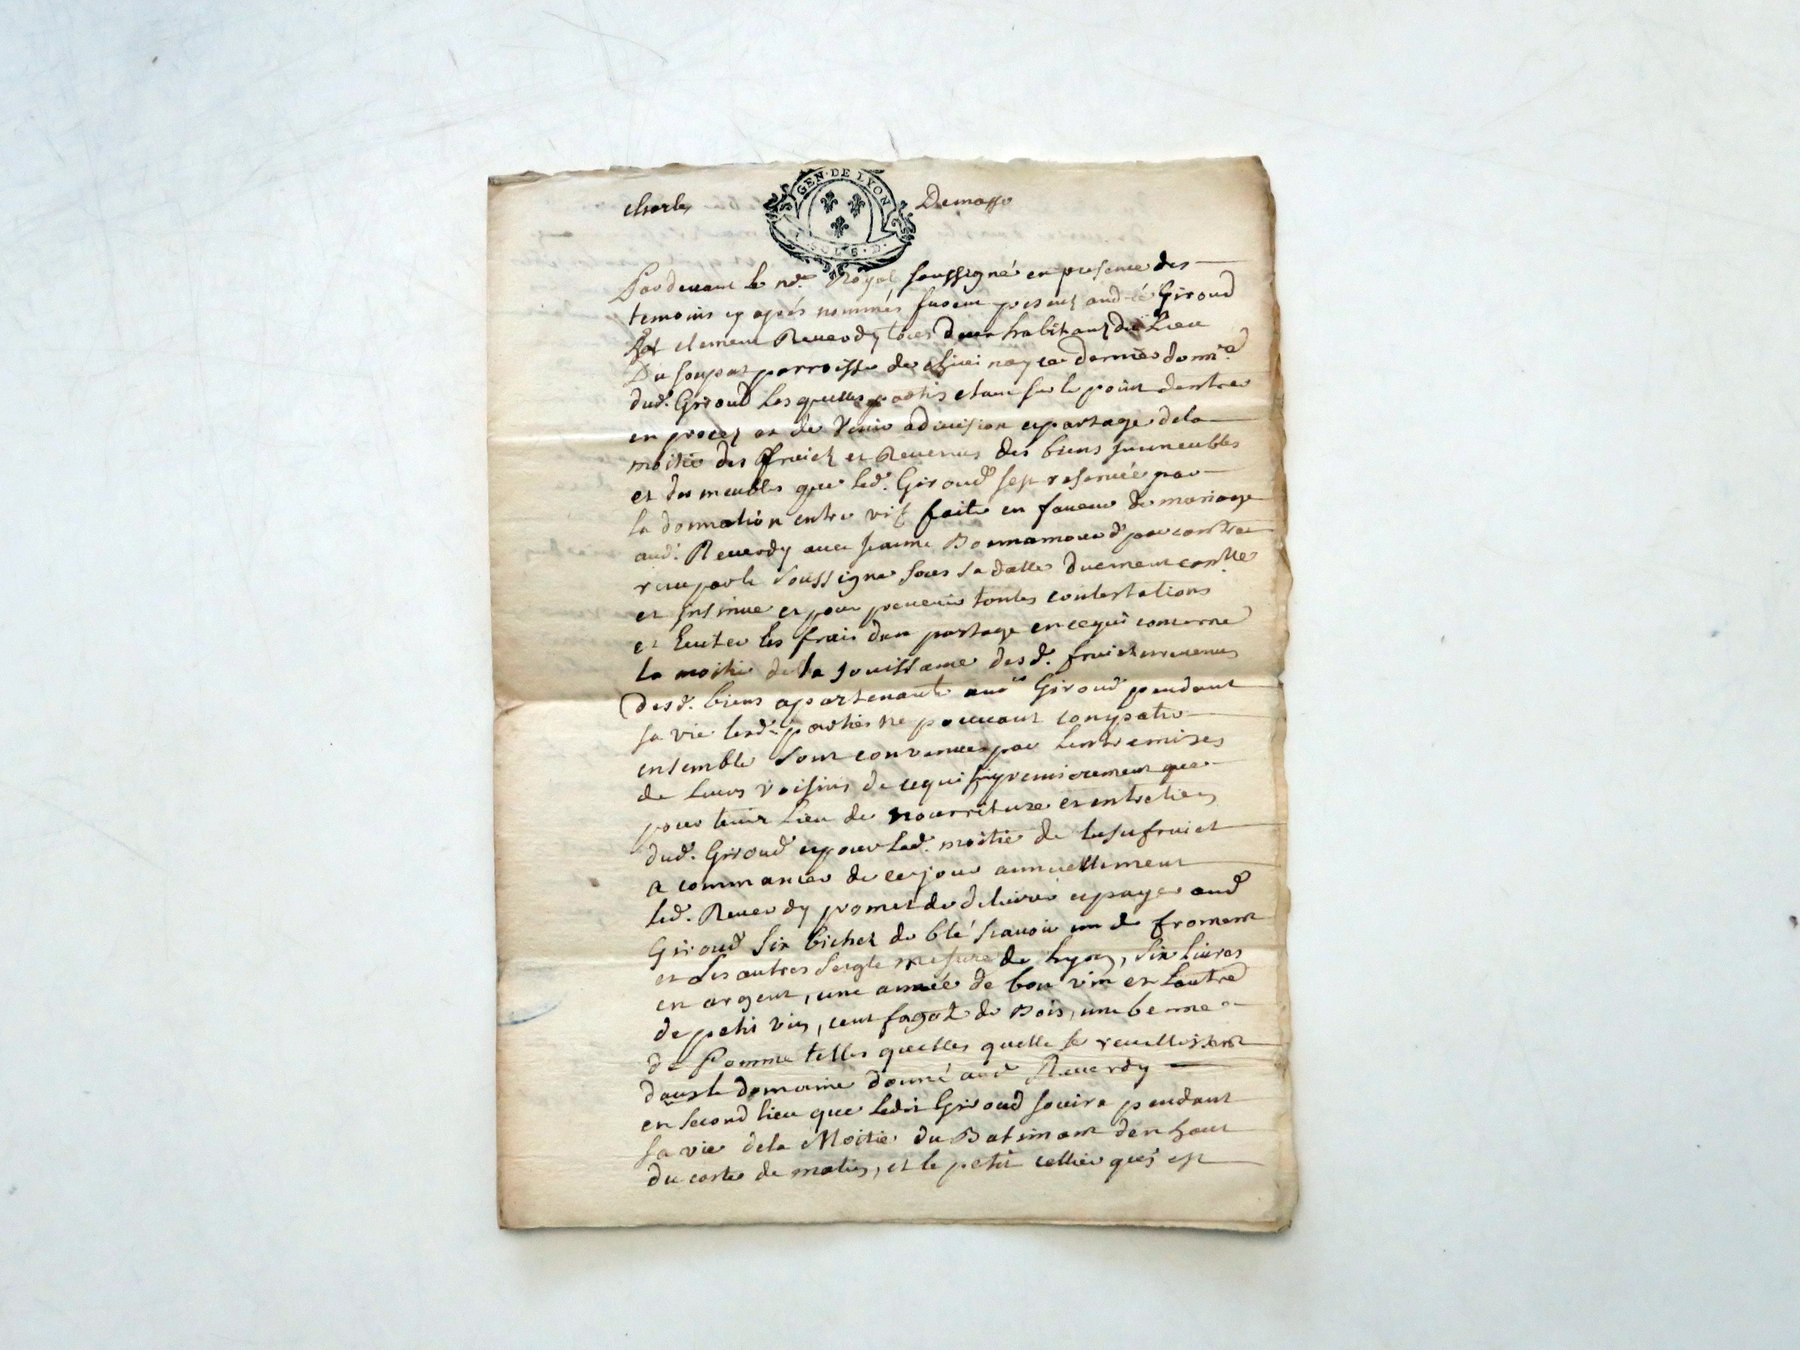 GEN·DE LYON
SOLS·D·
Charles Demasso
Pardevant le nre. Royal soussigné en presence des
temoins cy après nommés furent presens andré Giroud
et clement Reverdy tous deux habitans du Lieu
Du parroisse de ce dernier
dud. Giroud Lesquelles partis etant sur le point dentrer
en procez et de venir a division et partage de la
moitié des fruicts et Revenus des biens immeubles
et des meubles que led. Giroud sest reservée par
la donnation entre vifs faite en faveur de mariage
aud. Reverdy avec jeanne Bonnamour par contract
receu par le soussigné sous sa datte duement conlle
et insinué et pour prevenir toutes contestations
et Eviter les frais dun partage en ce qui concerne
la moitié de la jouissance desd. fruicts et revenus
desd. biens apartenants aud. Giroud pendant
sa vie lesd. parties ne pouvant conpatir
ensemble sont convenues par lentremises
de leurs voisins de ce qui suit premierement que
pour tenir Lieu de nourriture et entretien
dud. Giroud et pour lad. moitié de lusufruict
a commancer de ce jour annuellement
led. Reverdy promet de delivrer et payer aud
Giroud six bichets de blé scavoir un de froment
et les autres seigle mesure de Lyon, six livres
en argent, une année de bon vin et Lautre
de petit vin, cent fagots de Bois, une benne
de Pomme telles quelles quelle se recuilliront
dans le domaine donné aud Reverdy
en second lieu que ledit Giroud jouira pendant
sa vie de la Moitié du Batiment den haut
du costé de matin, et le petit cellier qui est